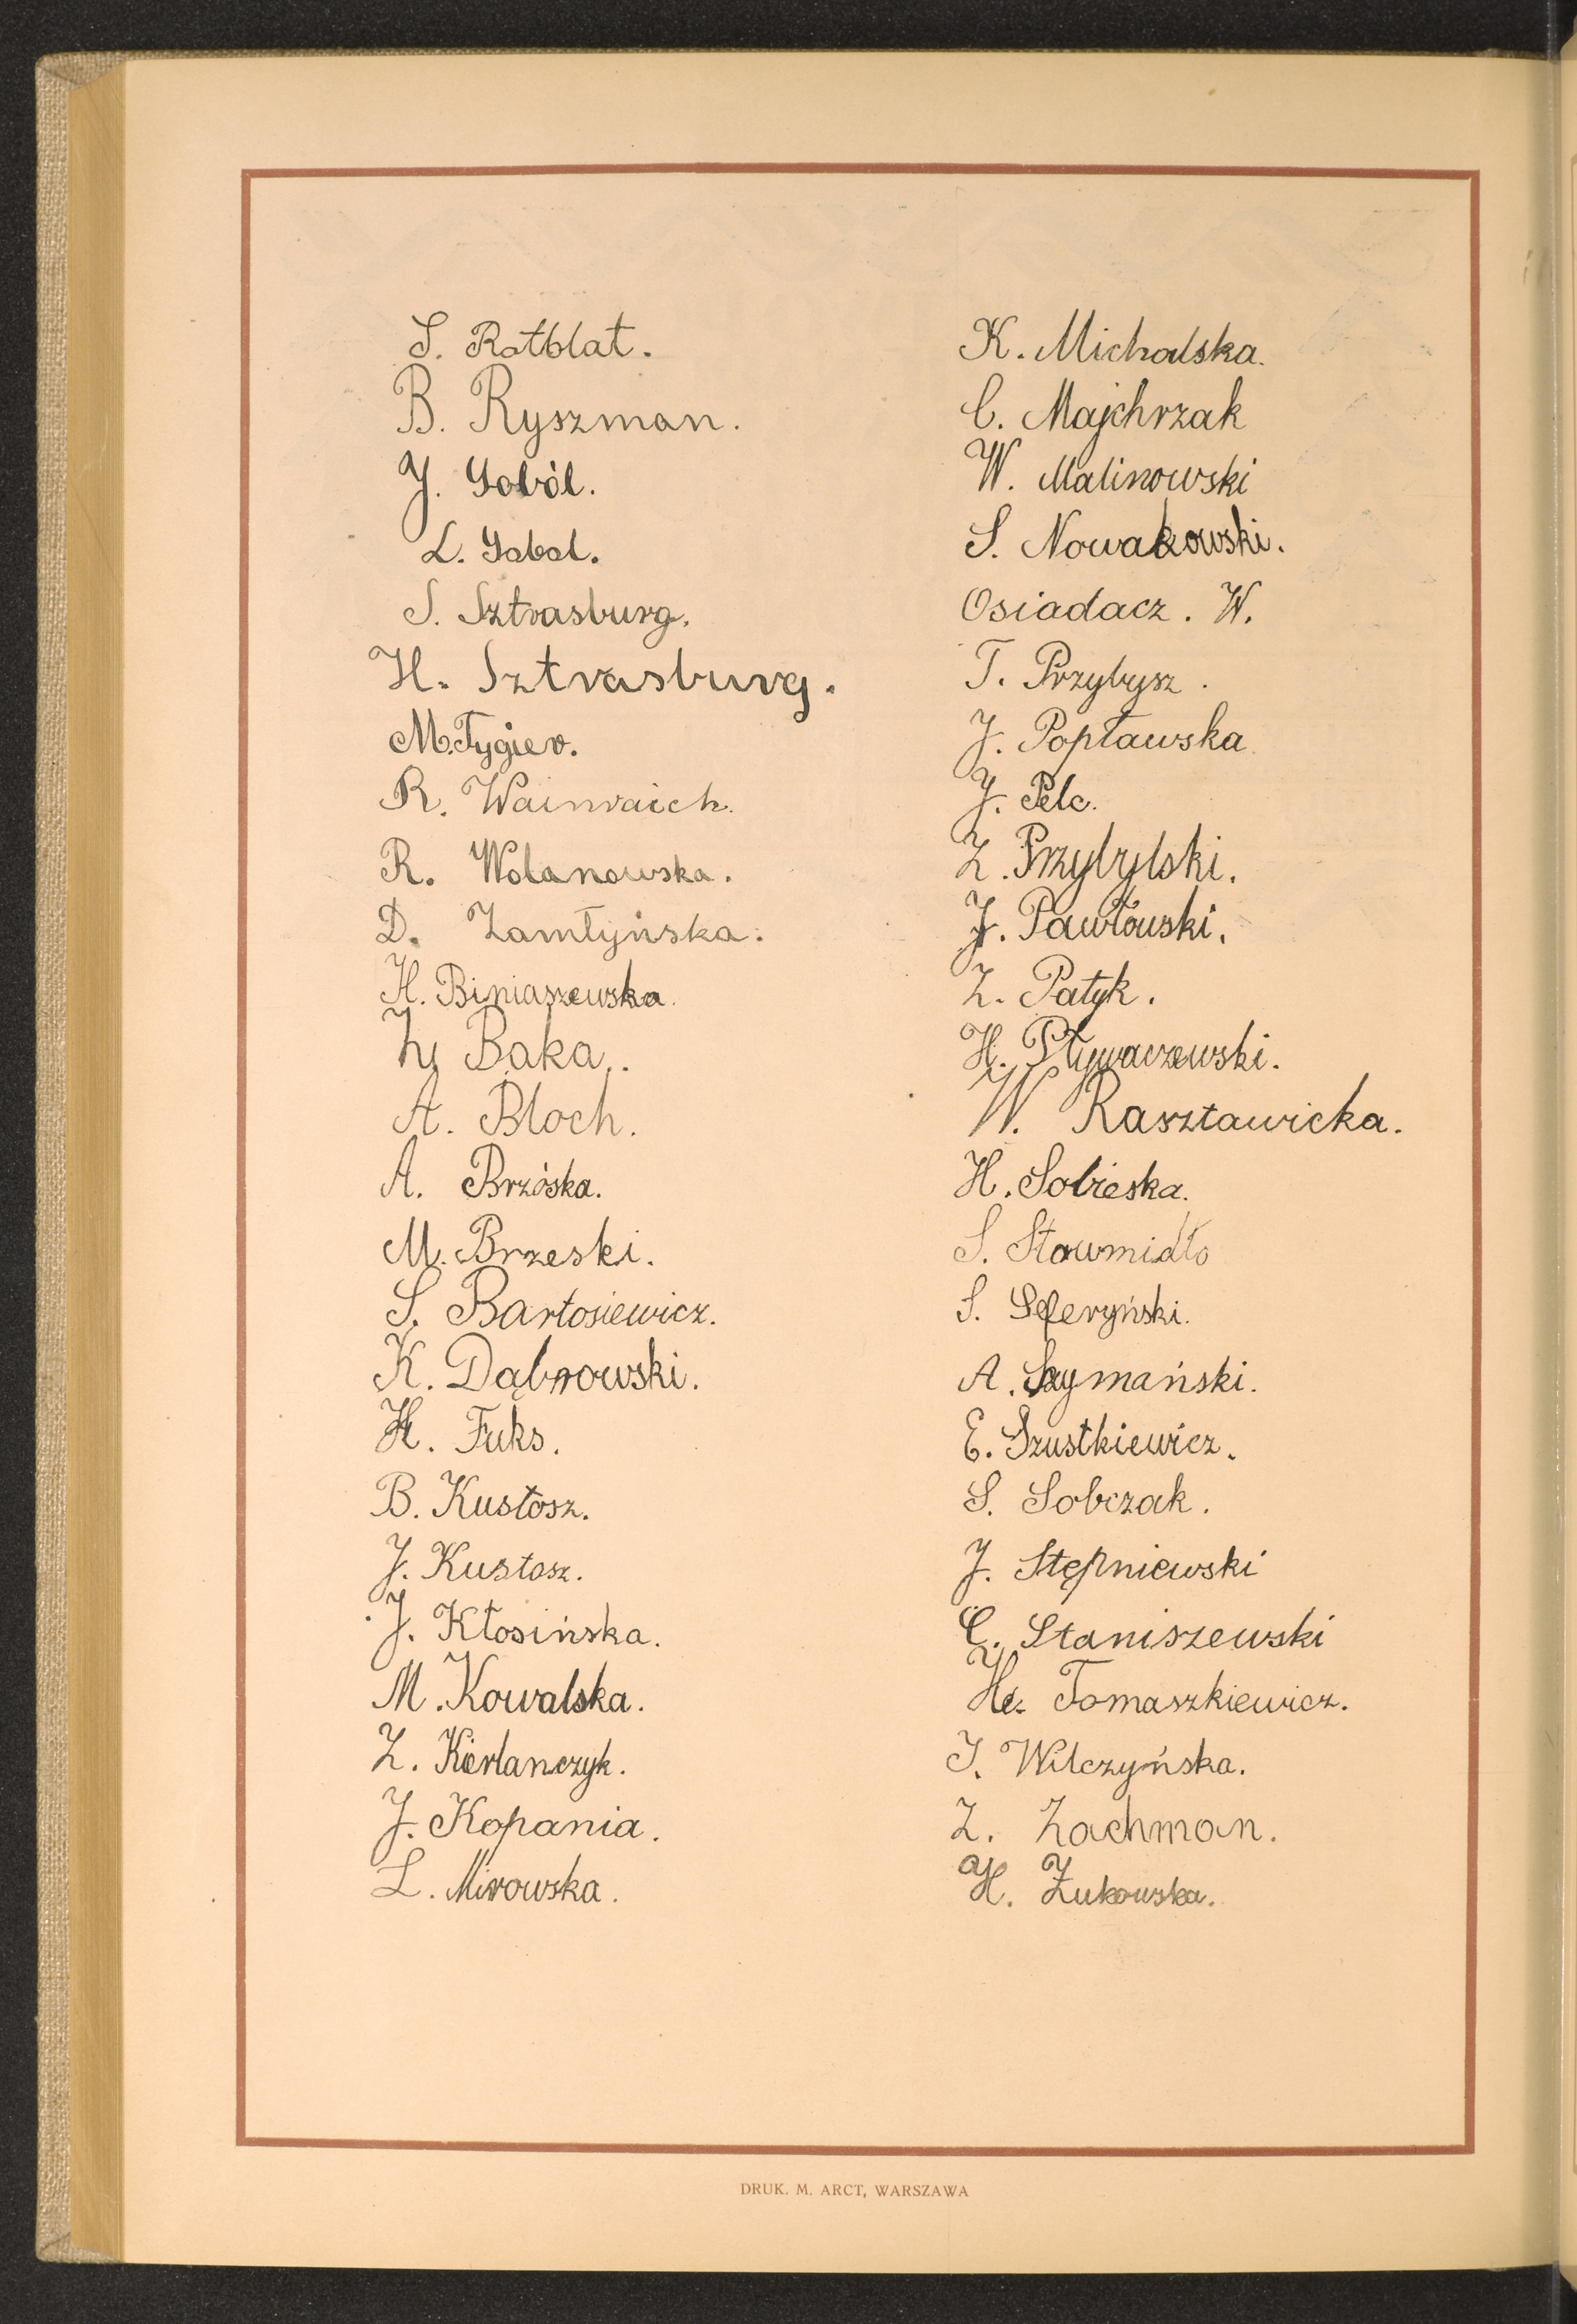 S. Rotblat.
B. Ryszman.
J. Soból.
L. Sobol.
S. Sztrasburg.
H. Sztrasburg.
M. Tygier.
R. Wainraich.
R. Wolanowska.
D. Zamłyńska.
H. Biniaszewska.
Z. Baka.
A. Bloch.
A. Brzóska.
M. Brzeski.
S. Bartosiewicz.
K. Dąbrowski.
H. Fuks.
B. Kustosz.
J. Kustosz.
J. Kłosińska.
M. Kowalska.
Z. Kierlańczyk.
J. Kopania.
L. Mirowska.
K. Michalska.
C. Majchrzak
W. Malinowski
S. Nowakowski.
Osiadacz. W.
T. Przybysz.
J. Popławska
J. Pelc.
Z. Przybylski.
J. Pawłowski.
Z. Patyk.
H. Pływaczewski.
W. Raszławicka.
H. Sobieska.
S. Stawmidło
S. Seferyński.
A. Szymański.
E. Szustkiewicz.
S. Sobczak.
J. Stępniewski
C. Staniszewski
H. Tomaszkiewicz.
J. Wilczyńska.
Z. Zachman.
H. Żukowska.
DRUK. M. ARCT, WARSZAWA